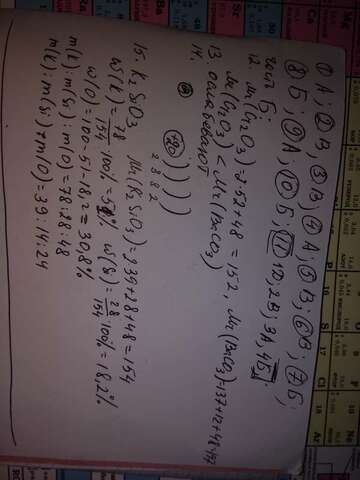 ① А; ② В, ③ В; ④ А; ⑤ В; ⑥ В; ⑦ Б;
⑧ Б; ⑨ А, ⑩ Б; ⑪ 1Д, 2В; 3А, 4Б
Часть Б:
12. Mr(Cr₂O₃)= 52+48=152, Mr(BaCO₃)=137+12+48=197
Mr(Cr₂O₃) < Mr(BaCO₃)
13
14.
+20 ) ) ) )
2 8 8 2
15. K₂SiO₃ Mr(K₂SiO₃)=2·39+28+48=154
W(K)=78/154·100%=51% W(Si)=28/154·100%=18,2%
W(O)=100-51-18,2=30,8%
m(K):m(Si):m(O)=78:28:48
m(K):m(Si):m(O)=39:14:24